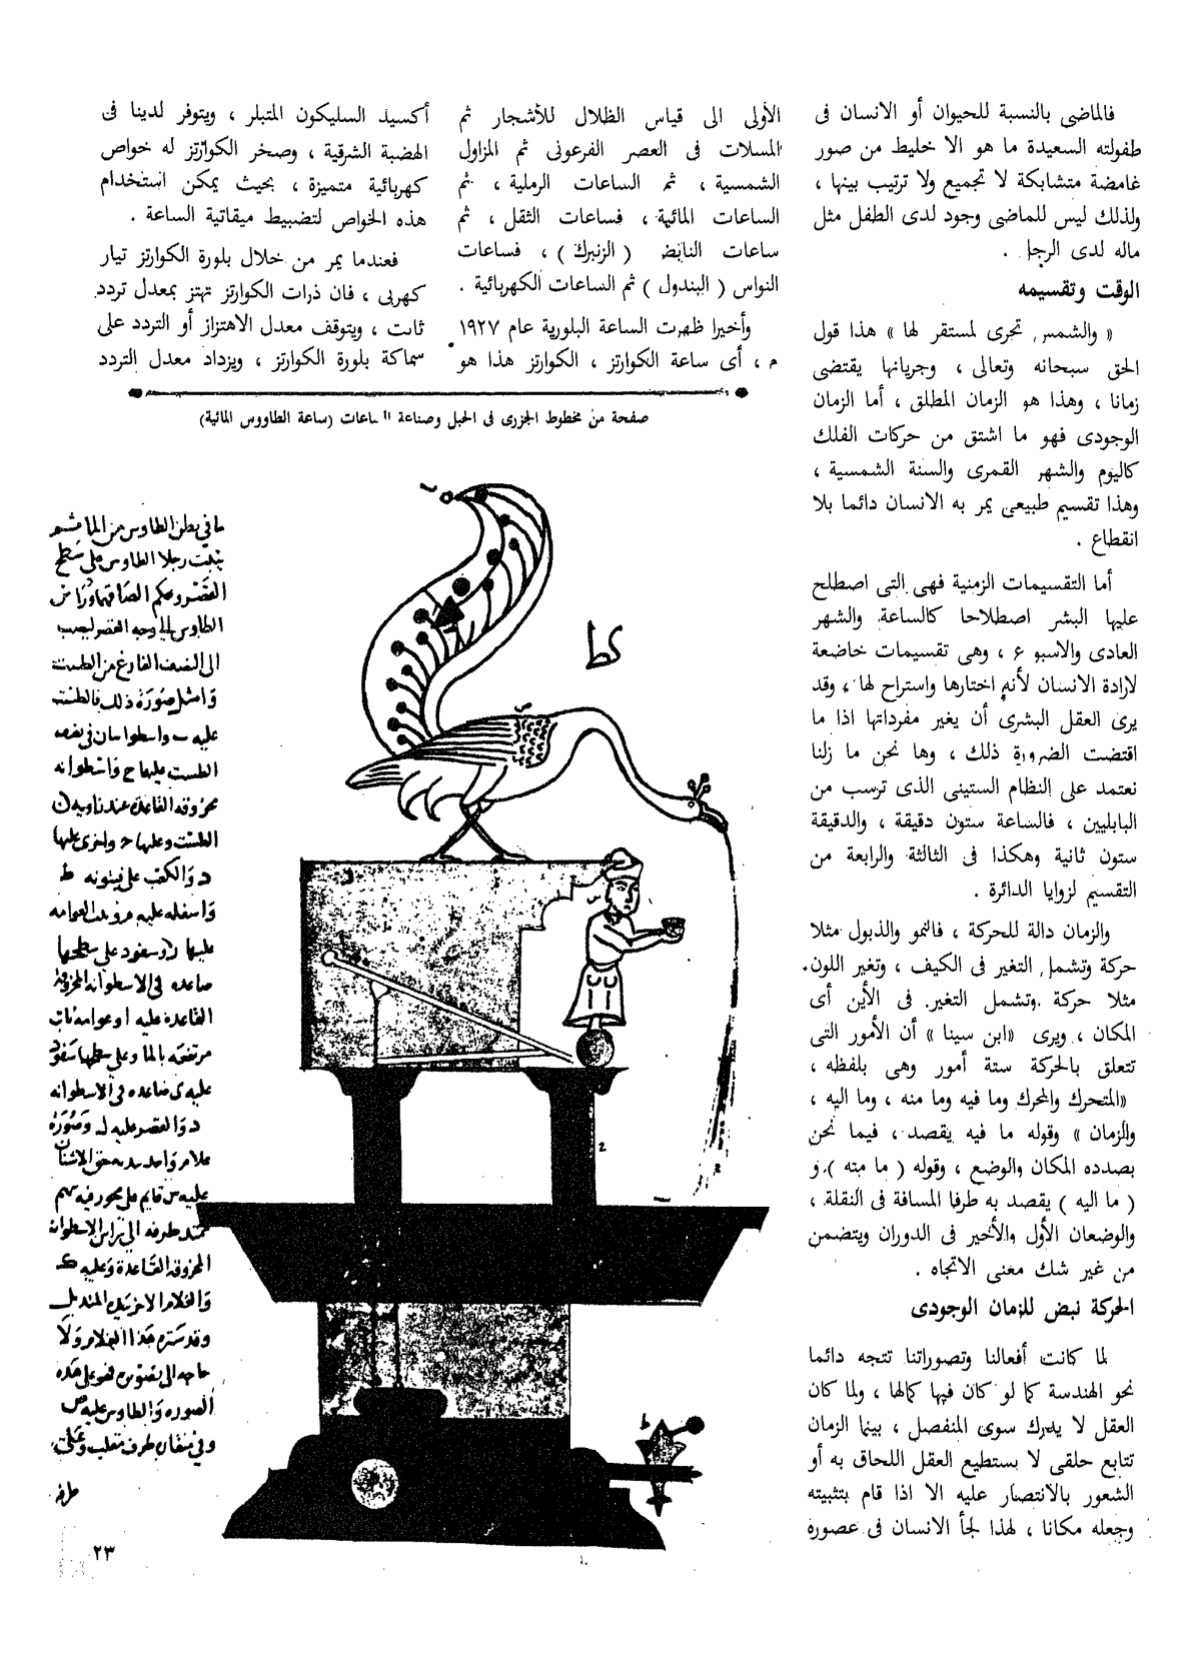 فالماضى بالنسبة للحيوان أو الانسان فى
طفولته السعيدة ما هو الا خليط من صور
غامضة متشابكة لا تجميع ولا ترتيب بينها ،
ولذلك ليس للماضى وجود لدى الطفل مثل
ماله لدى الرجل .
الوقت وتقسيمه
« والشمس تجرى لمستقر لها » هذا قول
الحق سبحانه وتعالى ، وجريانها يقتضى
زمانا ، وهذا هو الزمان المطلق ، أما الزمان
الوجودى فهو ما اشتق من حركات الفلك
كاليوم والشهر القمرى والسنة الشمسية ،
وهذا تقسيم طبيعى يمر به الانسان دائما بلا
انقطاع .
أما التقسيمات الزمنية فهى التى اصطلح
عليها البشر اصطلاحا كالساعة والشهر
العادى والاسبوع ، وهى تقسيمات خاضعة
لارادة الانسان لأنه اختارها واستراح لها ، وقد
يرى العقل البشرى أن يغير مفرداتها اذا ما
اقتضت الضرورة ذلك ، وها نحن ما زلنا
نعتمد على النظام الستينى الذى ترسب من
البابليين ، فالساعة ستون دقيقة ، والدقيقة
ستون ثانية وهكذا فى الثالثة والرابعة من
التقسيم لزوايا الدائرة .
والزمان دالة للحركة ، فالنمو والذبول مثلا
حركة وتشمل التغير فى الكيف ، وتغير اللون
مثلا حركة وتشمل التغير فى الأين أى
المكان ، ويرى «ابن سينا» أن الأمور التى
تتعلق بالحركة ستة أمور وهى بلفظه ،
«المتحرك والمحرك وما فيه وما منه ، وما اليه ،
والزمان » وقوله ما فيه يقصد ، فيما نحن
بصدده المكان والوضع ، وقوله ( ما منه ) و
( ما اليه ) يقصد به طرفا المسافة فى النقلة ،
والوضعان الأول والأخير فى الدوران ويتضمن
من غير شك معنى الاتجاه .
الحركة نبض للزمان الوجودى
لما كانت أفعالنا وتصوراتنا تتجه دائما
نحو الهندسة كما لو كان فيها كمالها ، ولما كان
العقل لا يدرك سوى المنفصل ، بينما الزمان
تتابع حلقى لا يستطيع العقل اللحاق به أو
الشعور بالانتصار عليه الا اذا قام بتثبيته
وجعله مكانا ، لهذا لجأ الانسان فى عصوره
الأولى الى قياس الظلال للأشجار ثم
المسلات فى العصر الفرعونى ثم المزاول
الشمسية ، ثم الساعات الرملية ، ثم
الساعات المائية ، فساعات الثقل ، ثم
ساعات النابض ( الزنبرك ) ، فساعات
النواس ( البندول ) ثم الساعات الكهربائية .
وأخيرا ظهرت الساعة البلورية عام ١٩٢٧
م ، أى ساعة الكوارتز ، الكوارتز هذا هو
أكسيد السليكون المتبلر ، ويتوفر لدينا فى
الهضبة الشرقية ، وصخر الكوارتز له خواص
كهربائية متميزة ، بحيث يمكن استخدام
هذه الخواص لتضبيط ميقاتية الساعة .
فعندما يمر من خلال بلورة الكوارتز تيار
كهربى ، فان ذرات الكوارتز تهتز بمعدل تردد
ثابت ، ويتوقف معدل الاهتزاز أو التردد على
سماكة بلورة الكوارتز ، ويزداد معدل التردد
صفحة من مخطوط الجزرى فى الحيل وصناعة الساعات (ساعة الطاووس المائية)
ما فى بطن الطاوس من الماء
رجلا الطاوس على سطح
القصر
الطاوس الى وجه القصر
الى النصف الفارغ من الطست
صورة ذلك فالطست
عليه
الطست عليها ح واسطوانه
مخروقه القاعدة عند
الطست وعليها ح واخرى عليها
د
واسفله عليه
عليها على سطحها
صاعده فى الاسطوانه المخروقه
القاعدة عليه
مرتفعه بالماء وعلى سطحها سفود
عليه ى صاعده فى الاسطوانه
د والقصر عليه ل وصورة
غلام
عليه س قايم على محور فيه سهم
ممتد طرفه الى الاسطوانه
المخروقه القاعدة وعليه ك
والغلام الاخر
هذا الغلام ولا
حاجه الى على هذه
الصورة والطاوس عليه ص
وفى منقاره طرف
طرفه
٢٣